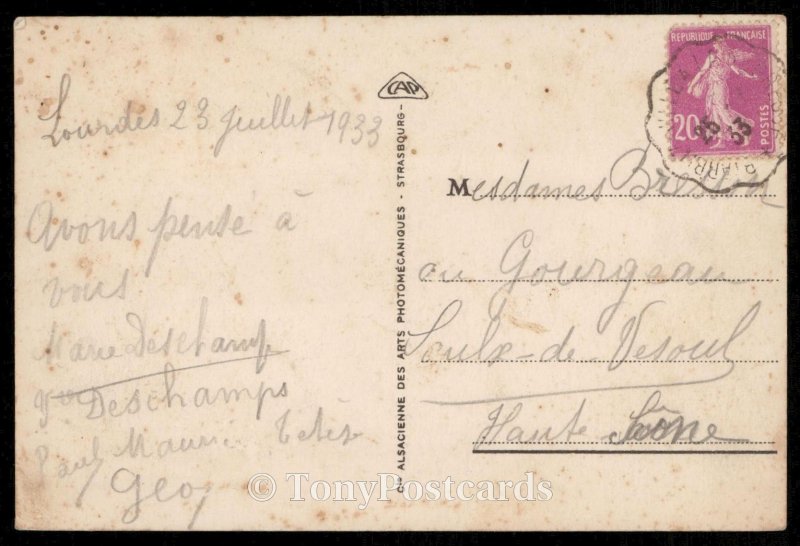 Lourdes 23 juillet 1933
Avons pensé à
vous
Marie Deschamps
Vve Deschamps
Paul Mauri
Geo
CAP
Cie ALSACIENNE DES ARTS PHOTOMÉCANIQUES - STRASBOURG -
REPUBLIQUE FRANÇAISE
20c
POSTES
33
Mesdames
ou Gourgeau
Soulx-de-Vesoul
Haute Saône
© TonyPostcards